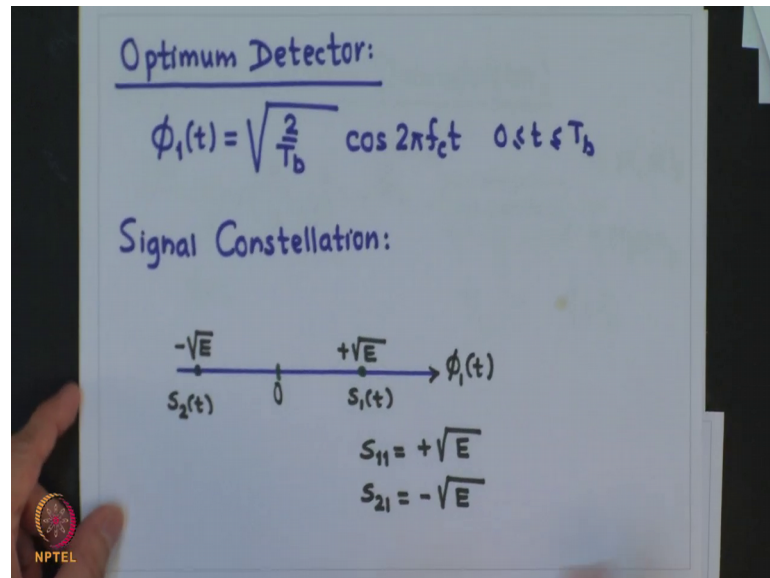 Optimum Detector:
ϕ₁(t) = √(2/T_b) cos 2πf_c t 0 ≤ t ≤ T_b
Signal Constellation:
-√E +√E
S₂(t) 0 S₁(t) ϕ₁(t)
S₁₁ = +√E
S₂₁ = -√E
NPTEL